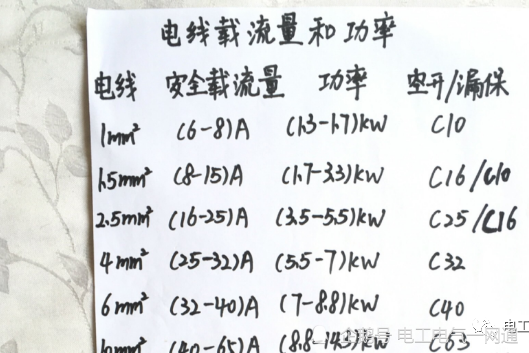 电线载流量和功率
电线 安全载流量 功率 空开/漏保
1mm² (6-8)A (1.3-1.7)kW C10
1.5mm² (8-15)A (1.7-3.3)kW C16/C10
2.5mm² (16-25)A (3.5-5.5)kW C25/C16
4mm² (25-32)A (5.5-7)kW C32
6mm² (32-40)A (7-8.8)kW C40
电工
10mm² (40-65)A (8.8-14.3)kW C63
电工电气一网通